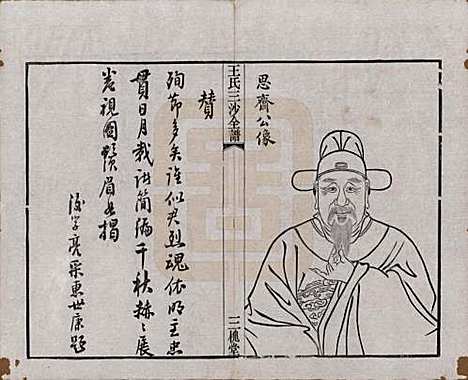 思齊公像
王氏三沙全譜
三槐堂
贊
殉節多矣誰似君烈魂依明主忠
貫日月栽諸簡編千秋赫々展
卷視圖鬚眉如揭
後學亮采惠世康題